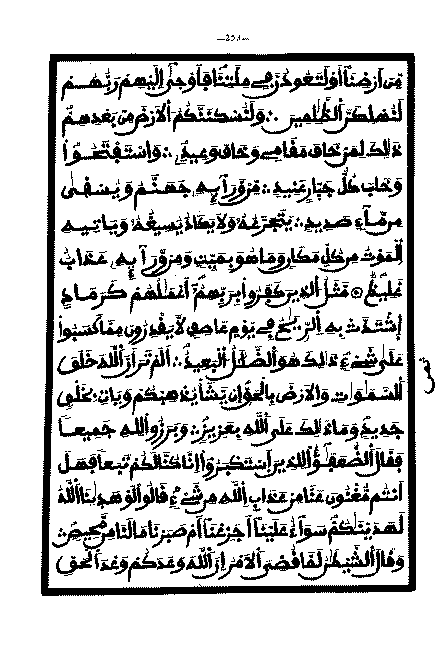 مِّنَ اَرْضِنَآ أَوْ لَتَعُودُنَّ فِي مِلَّتِنَا فَأَوْحَىٰٓ إِلَيْهِمْ رَبُّهُمْ
لَنُهْلِكَنَّ ٱلظَّٰلِمِينَ ∴ وَلَنُسْكِنَنَّكُمُ ٱلَارْضَ مِنۢ بَعْدِهِمْ
ذَٰلِكَ لِمَنْ خَافَ مَقَامِي وَخَافَ وَعِيدِ ∴ وَٱسْتَفْتَحُواْ
وَخَابَ كُلُّ جَبَّارٍ عَنِيدٍ ∴ مِّنْ وَّرَآئِهِۦ جَهَنَّمُ وَيُسْقَىٰ
مِن مَّآءٍ صَدِيدٍ ∴ يَتَجَرَّعُهُۥ وَلَا يَكَادُ يُسِيغُهُۥ وَيَاتِيهِ
ٱلْمَوْتُ مِن كُلِّ مَكَانٍ وَمَا هُوَ بِمَيِّتٍ وَمِنْ وَّرَآئِهِۦ عَذَابٌ
غَلِيظٌ ۞ مَّثَلُ ٱلذِينَ كَفَرُواْ بِرَبِّهِمُۥٓ أَعْمَٰلُهُمْ كَرَمَادٍ
ٱشْتَدَّتْ بِهِ ٱلرِّيَٰحُ فِي يَوْمٍ عَاصِفٍ لَّا يَقْدِرُونَ مِمَّا كَسَبُواْ
عَلَىٰ شَيْءٍ ذَٰلِكَ هُوَ ٱلضَّلَٰلُ ٱلْبَعِيدُ ∴ أَلَمْ تَرَ أَنَّ ٱللَّهَ خَلَقَ
ٱلسَّمَٰوَٰتِ وَٱلَارْضَ بِٱلْحَقِّ إِنْ يَّشَأْ يُذْهِبْكُمْ وَيَاتِ بِخَلْقٍ
جَدِيدٍ وَمَا ذَٰلِكَ عَلَى ٱللَّهِ بِعَزِيزٍ ∴ وَبَرَزُواْ لِلهِ جَمِيعاً
فَقَالَ ٱلضُّعَفَٰٓؤُاْ لِلذِينَ ٱسْتَكْبَرُوٓاْ إِنَّا كُنَّا لَكُمْ تَبَعاً فَهَلَ
اَنتُم مُّغْنُونَ عَنَّا مِنْ عَذَابِ ٱللَّهِ مِن شَيْءٍ قَالُواْ لَوْ هَدَيٰنَا ٱللَّهُ
لَهَدَيْنَٰكُمْ سَوَآءٌ عَلَيْنَآ أَجَزِعْنَآ أَمْ صَبَرْنَا مَا لَنَا مِن مَّحِيصٍ ∴
وَقَالَ ٱلشَّيْطَٰنُ لَمَّا قُضِيَ ٱلَامْرُ إِنَّ ٱللَّهَ وَعَدَكُمْ وَعْدَ ٱلْحَقِّ
ثمن